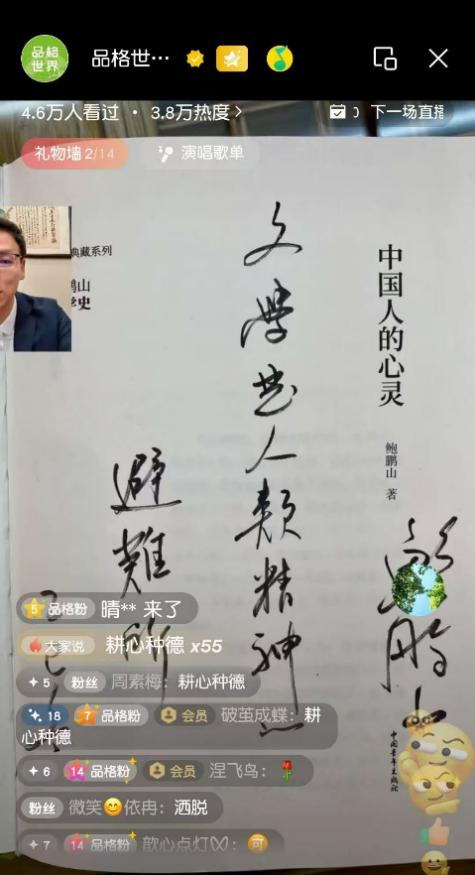 品格世界
品格世…
4.6万人看过 · 3.8万热度
下一场直播
礼物墙 2/14
演唱歌单
中国人的心灵
鲍鹏山 著
中国青年出版社
文學是人類精神
避難所
典藏系列
鹏山
学史
5 品格粉 晴** 来了
大家说 耕心种德 x55
5 粉丝 周素梅：耕心种德
18 7 品格粉 会员 破茧成蝶：耕
心种德
6 14 品格粉 会员 涅飞鸟：
粉丝 微笑😊依冉：洒脱
7 14 品格粉 歆心点灯